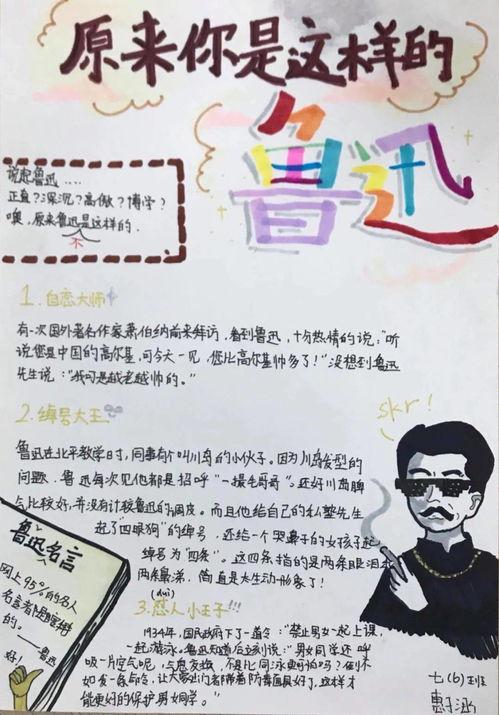 原来你是这样的
鲁迅
说起鲁迅....
正直?深沉?高傲?博学?
噢,原来鲁迅是这样的.
不
1.自恋大师
有一次国外著名作家萧伯纳前来拜访,看到鲁迅,十分热情的说:"听
说您是中国的高尔基,可今天一见,您比高尔基帅多了!"没想到鲁迅
先生说:"我可是越老越帅的。"
2.绰号大王
鲁迅在北平教学时,同事有个叫川岛的小伙子。因为川岛发型的
问题,鲁迅每次见他都是招呼"一撮毛哥哥"。还好川岛脾
气比较好,并没有计较鲁迅的调皮。而且他给自己的私塾先生
起了"四眼狗"的绰号,还给一个哭鼻子的女孩子起
绰号为"四条"。这四条,指的是两条眼泪和
两条鼻涕,简直是太生动形象了!
3.怼人小王子!!!
(duì)
1934年,国民政府下了一道令:"禁止男女一起上课,
一起游泳。鲁迅知道后立刻说:"男女同学还呼
吸一片空气呢,
不是比同泳更可怕吗?倒不
如发一条命令,让大家出门者带着防毒面具好了,这样才
能更好的保护男女同学。"
skr!
鲁迅名言
网上95%的名人
名言都是瞎掰
的。
——鲁迅
好!
七(6)班